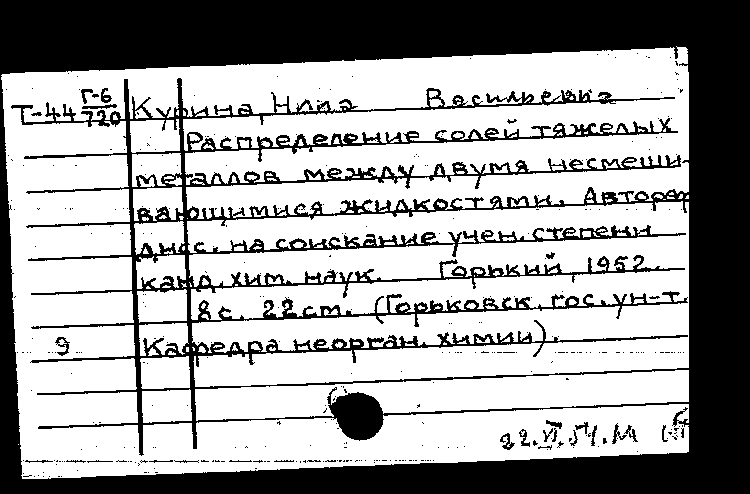 Т-44 Г-6/720 Курина, Васильевна
Распределение солей тяжелых
металлов между двумя несмеши-
вающимися жидкостями. Автореф
дисс. на соискание учен. степени
канд. хим. наук. Горький, 1952.
8 с. 22 см. (Горьковск. гос. ун-т.
9 Кафедра неорган. химии).
22.VI.54. М